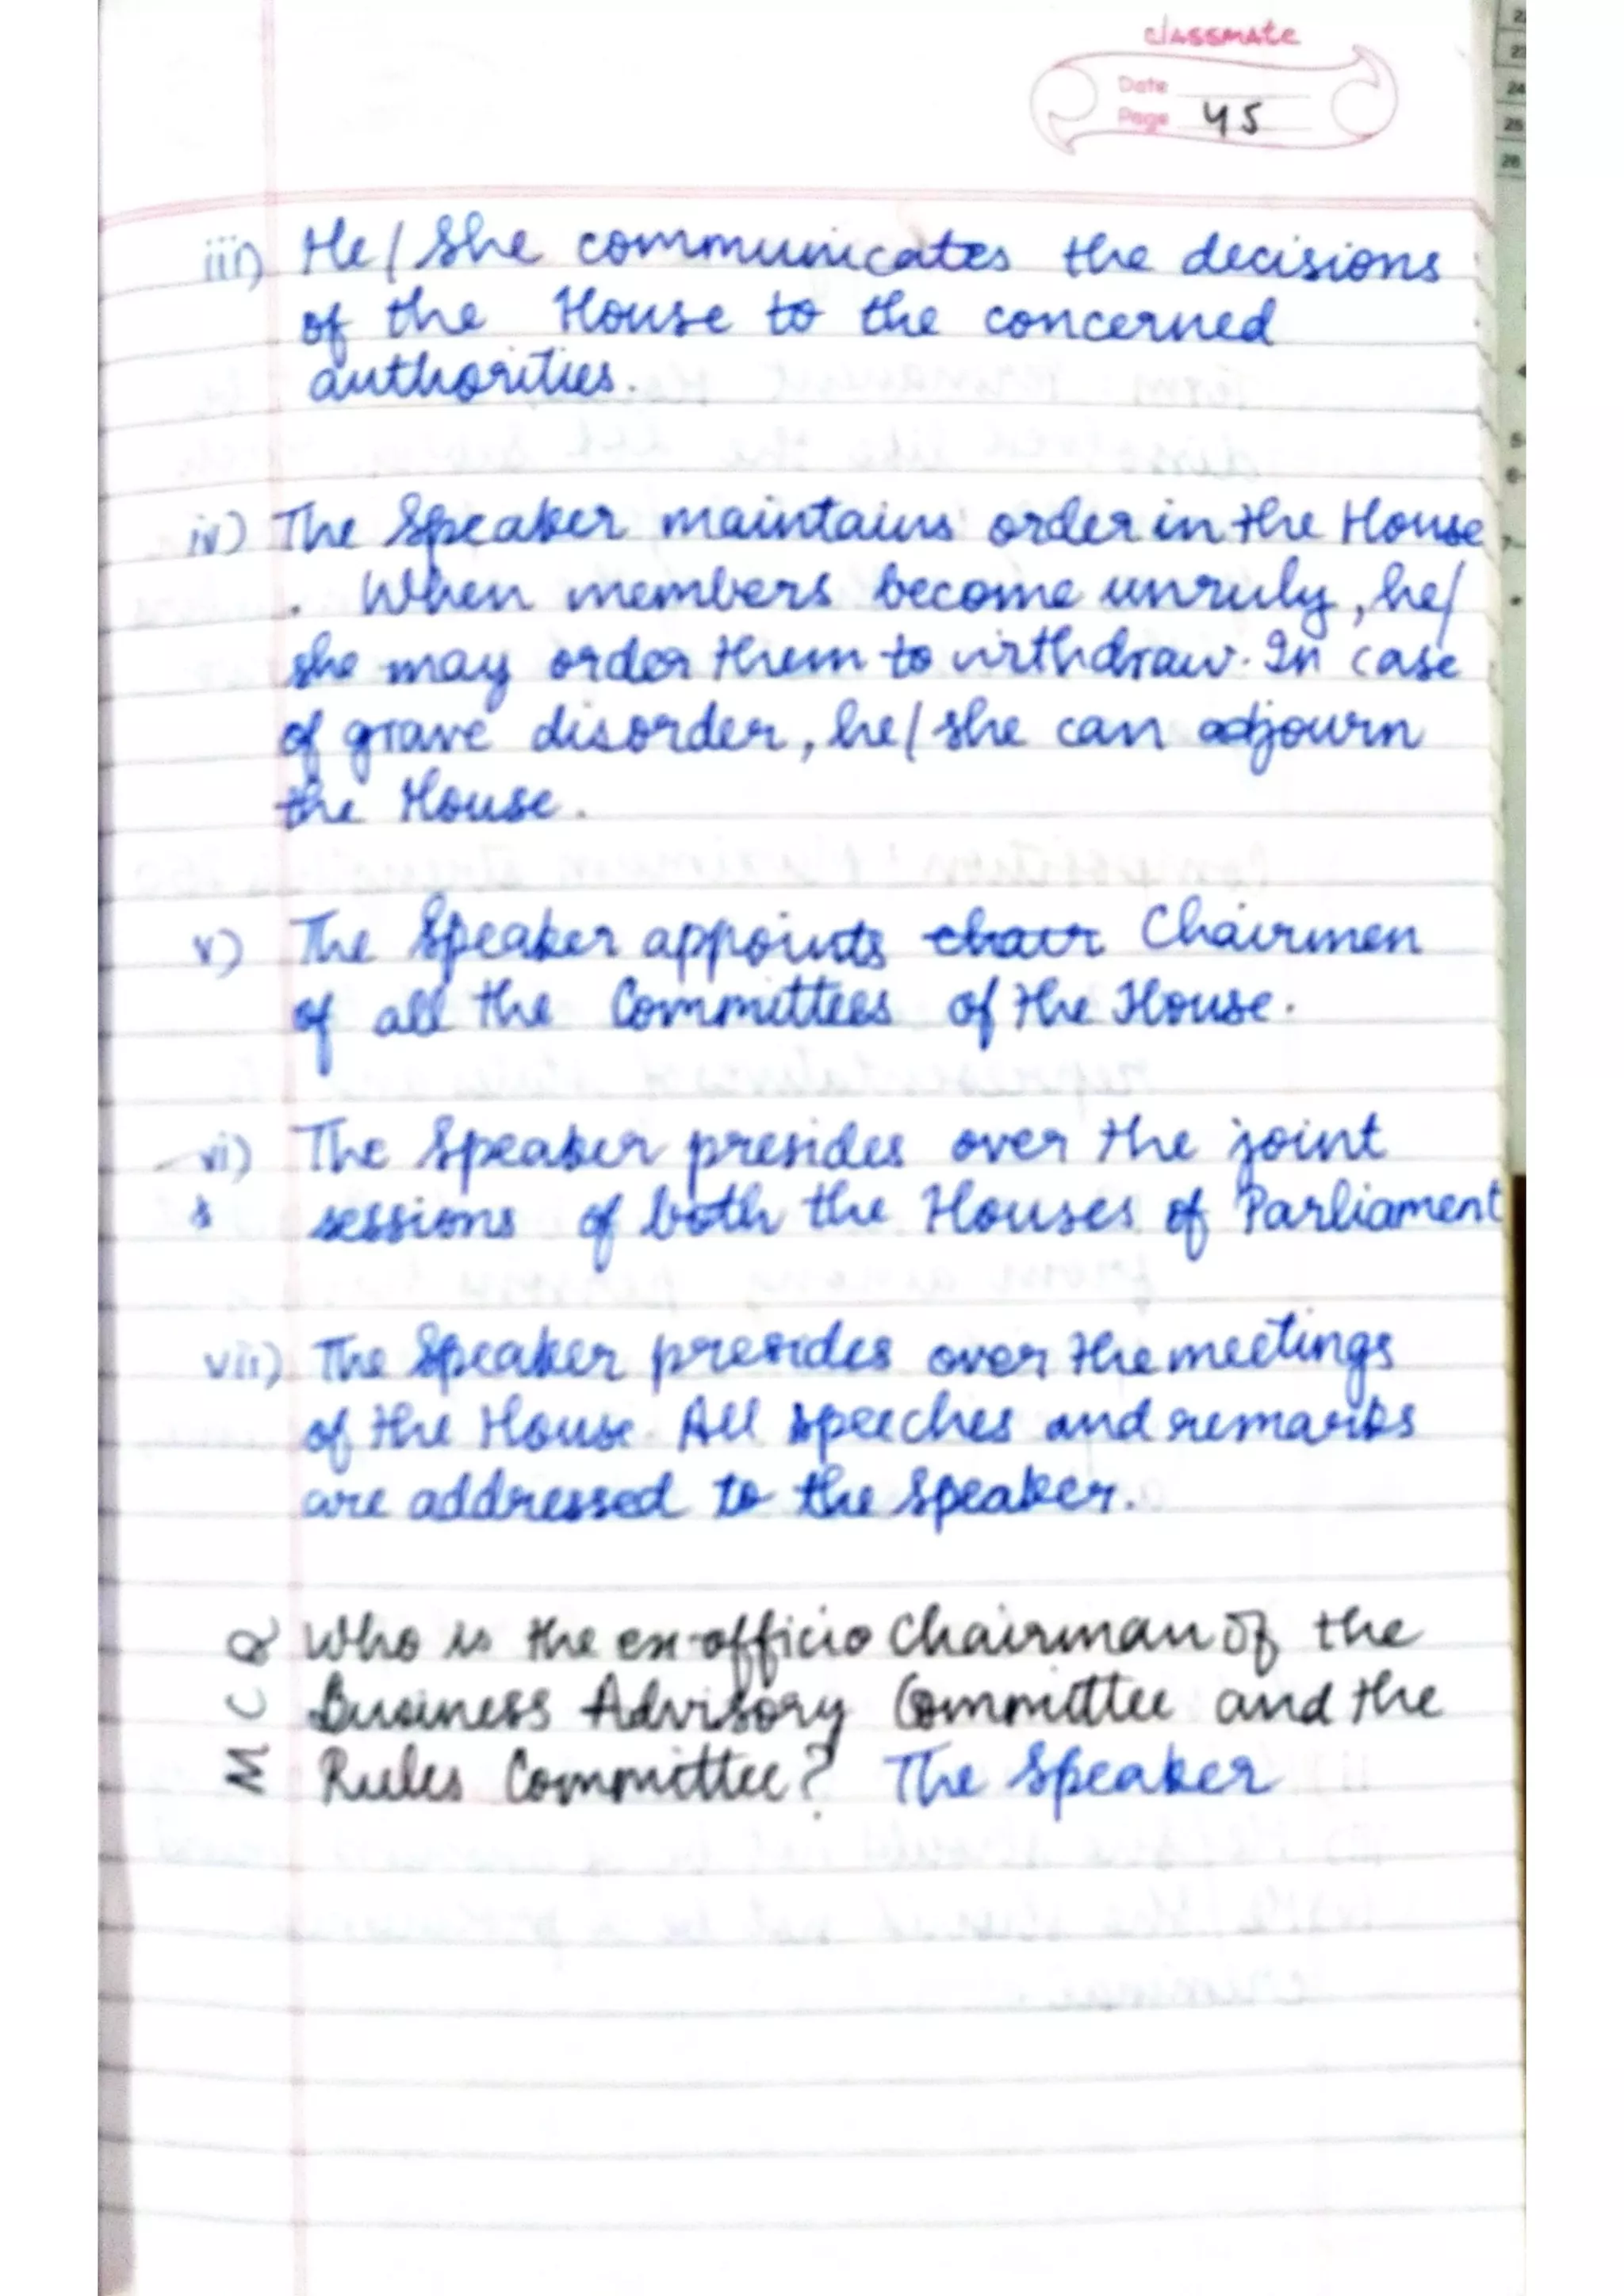 classmate
Date
Page 45
iii) He/She communicates the decisions
of the House to the concerned
authorities.
iv) The Speaker maintains order in the House
. When members become unruly, he/
she may order them to withdraw. In case
of grave disorder, he/she can adjourn
the House.
v) The Speaker appoints chair Chairmen
of all the Committees of the House.
vi) The Speaker presides over the joint
s sessions of both the Houses of Parliament
vii) The Speaker presides over the meetings
of the House. All speeches and remarks
are addressed to the Speaker.
MCQ Who is the ex-officio Chairman of the
Business Advisory Committee and the
Rules Committee? The Speaker